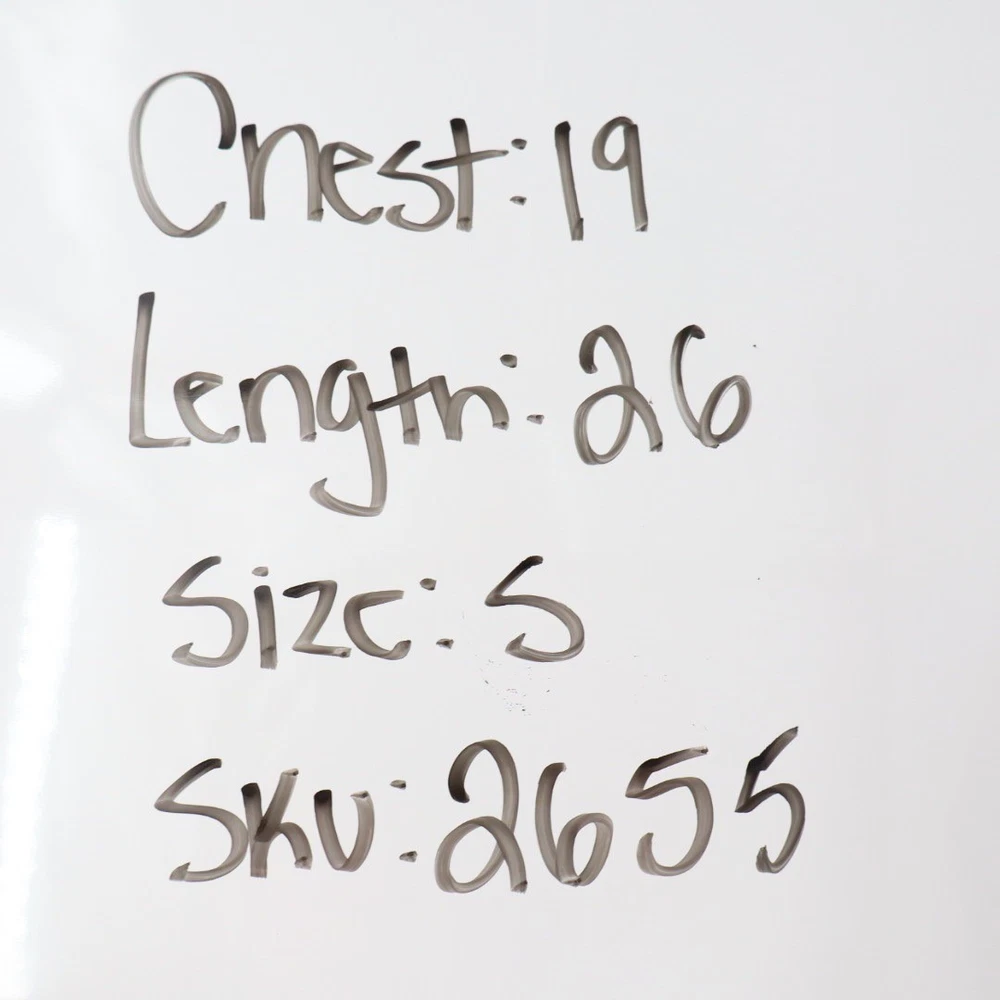 Chest: 19
Length: 26
Size: S
SKU: 2655